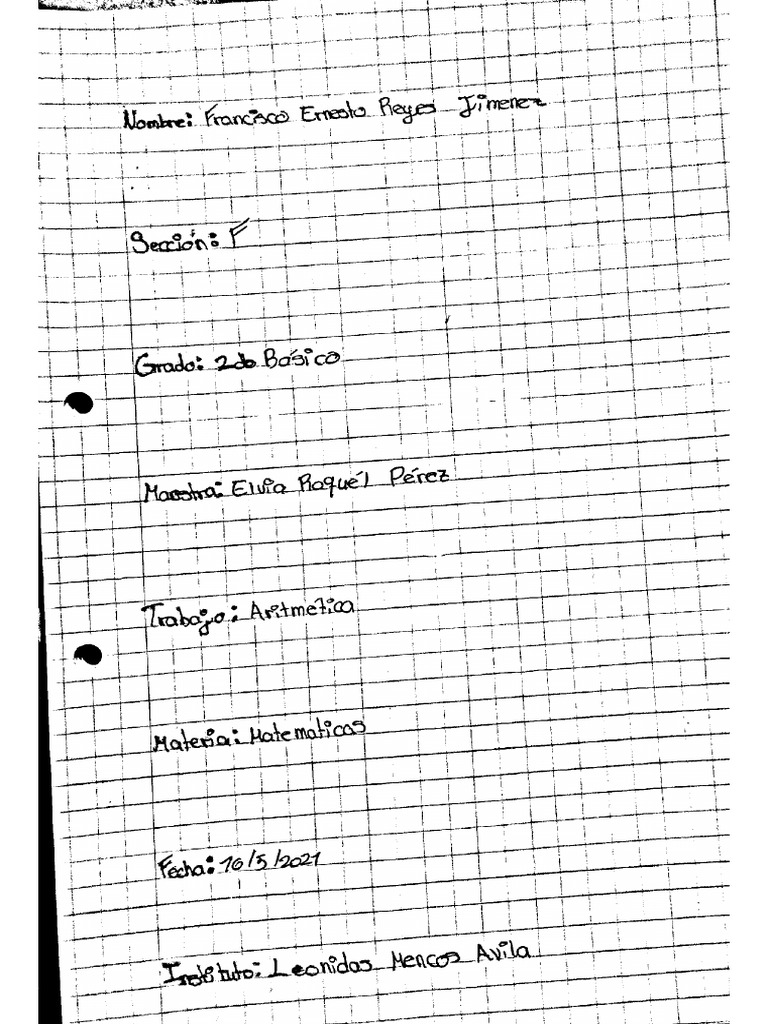 Nombre: Francisco Ernesto Reyes Jimenez
Sección: F
Grado: 2do Básico
Maestra: Elvia Raquél Pérez
Trabajo: Aritmetica
Materia: Matematicas
Fecha: 10/5/2021
Instituto: Leonidas Mencos Avila